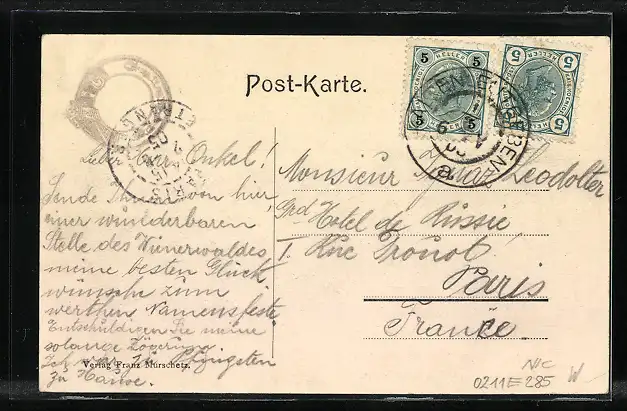 Post-Karte.
5 5 HELLER 5 5
5 HELLER 5
Lieber Onkel!
Sende Ihnen von hier
einer wunderbaren
Stelle des Wienerwaldes
meine besten Glück
wünsche zum
werthen Namensfeste.
Entschuldigen Sie meine
solange Zögerung.
Ich war zu Pfingsten
zu Hause.
Monsieur Leodolter
Grd Hotel de Russie
1. Rue Drouot
Paris
France.
Verlag Franz Mürschetz.
NIC
0211E285
W